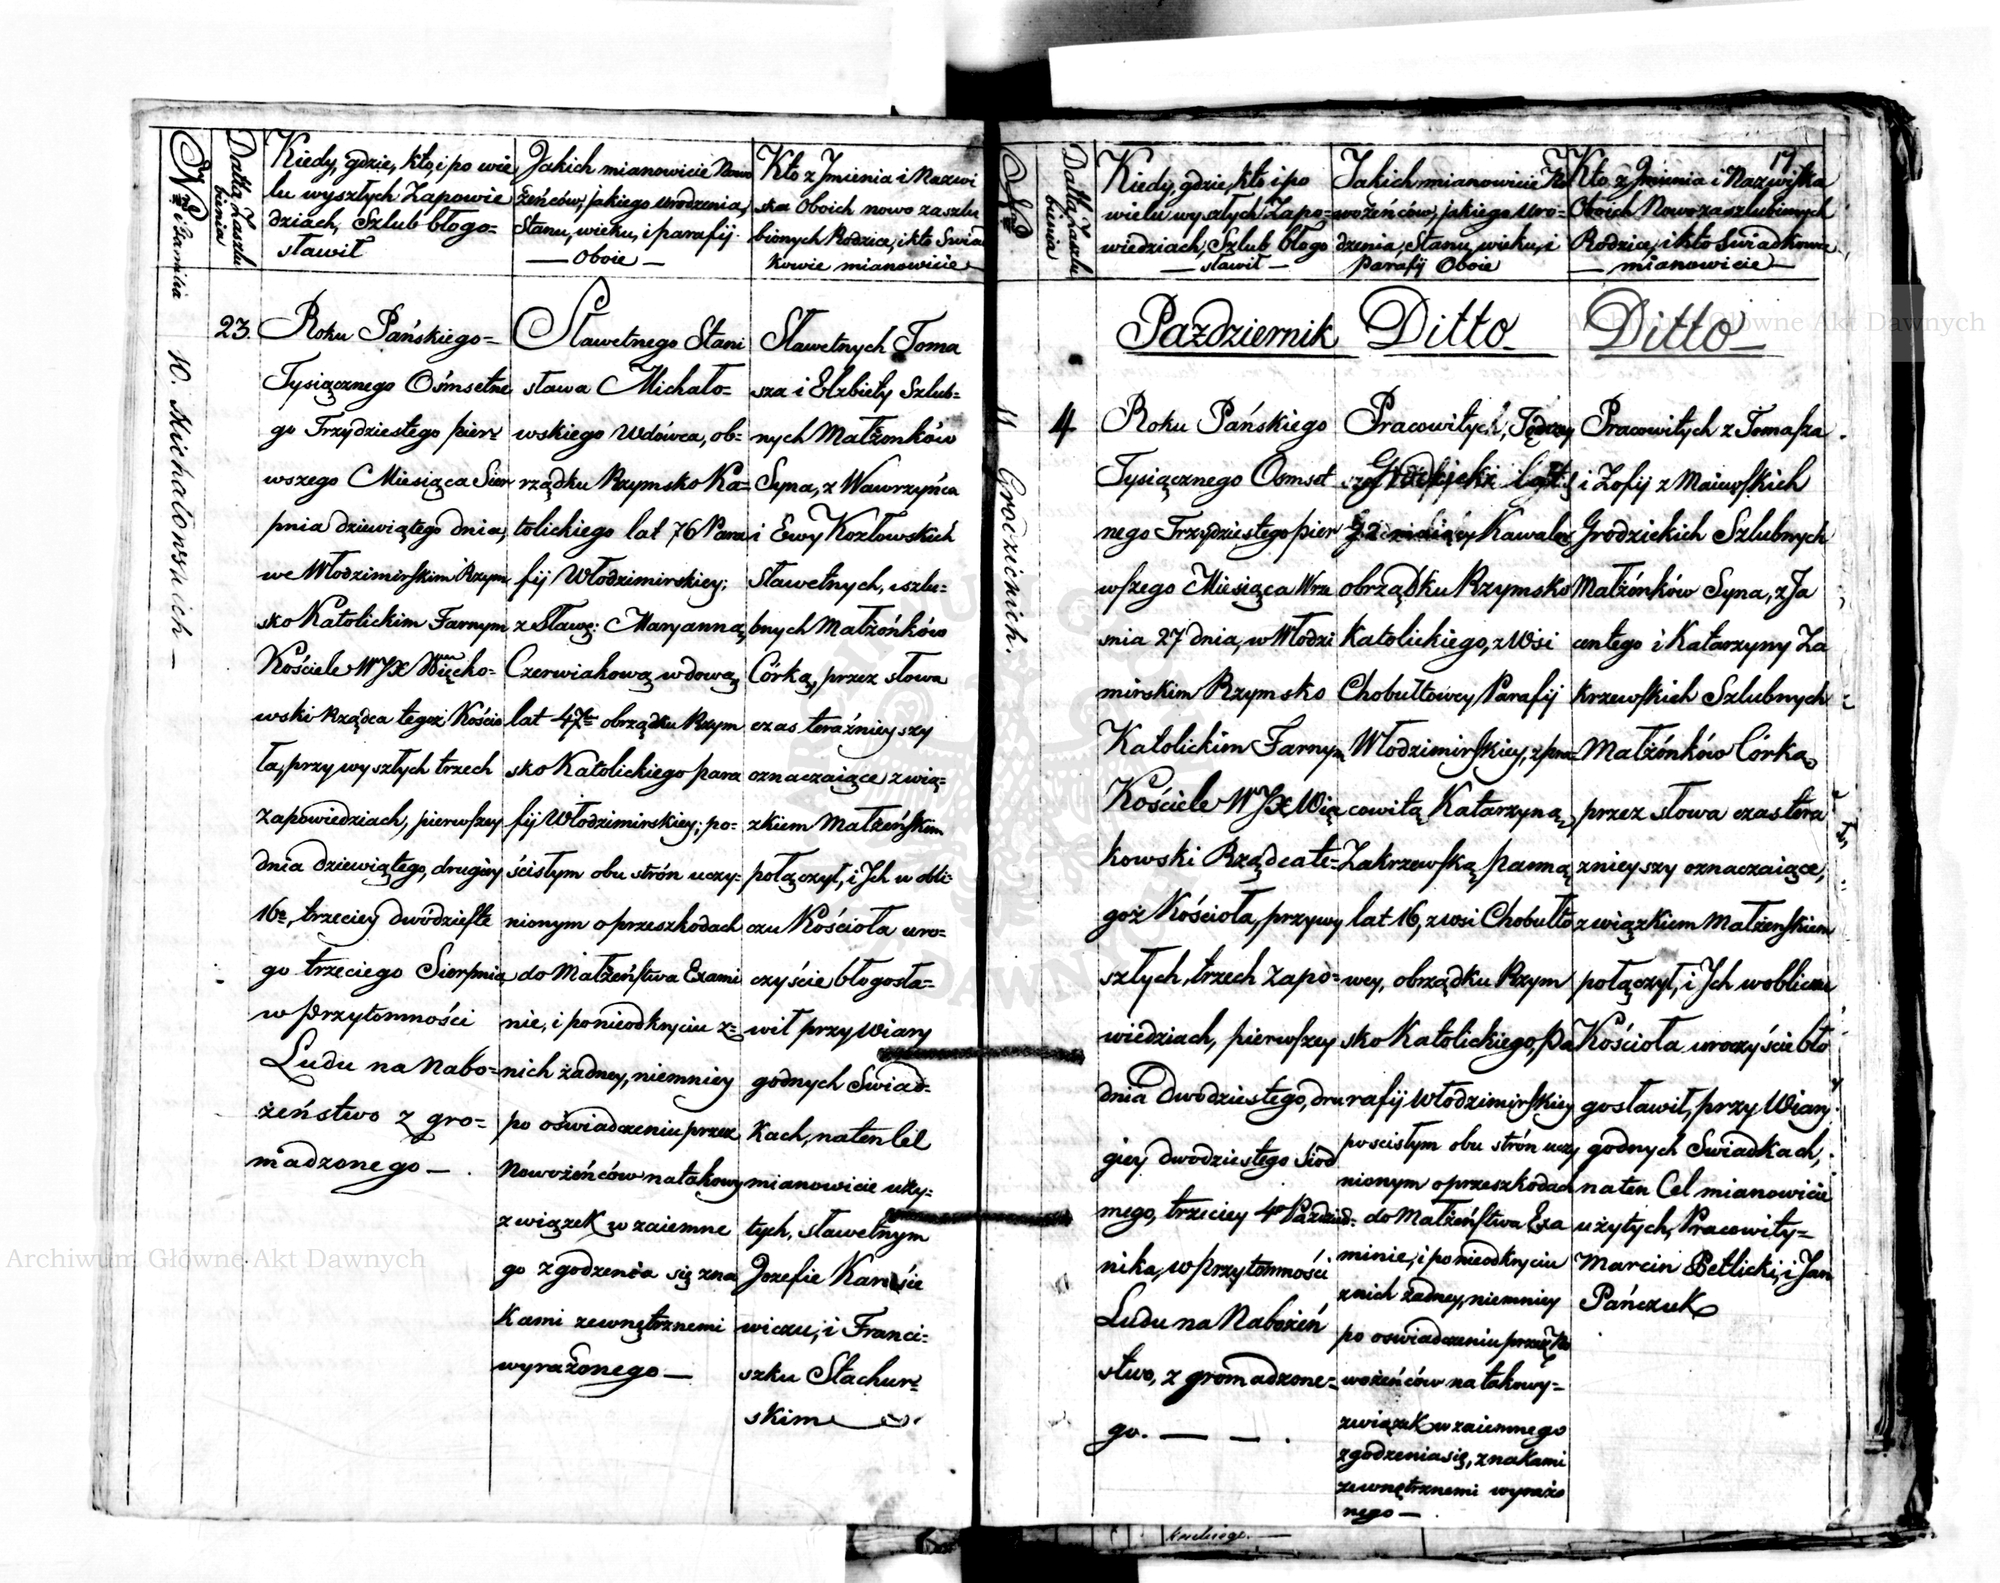 Nro i Familia
Datta Zaszlu
bienia
Kiedy, gdzie, kto, i po wie
lu wyszłych Zapowie
dziach, Szlub błogo=
sławił
Jakich mianowicie Nowo
żeńców, jakiego urodzenia,
Stanu, wieku, i parafij.
— Oboie —
Kto z Jmienia i Nazwi
ska Oboich nowo zaszlu
bionych Rodzice, i kto Swiad
kowie mianowicie
10. Michałowskich —
23.
Roku Pańskiego=
Tysiącznego Ośmsetne
go Trzydziestego pier=
wszego Miesiąca Sier
pnia dziewiątego dnia,
we Włodzimirskim Rzym
sko Katolickim Farnym
Kościele WJX Więcko=
wski Rządca tegoż Kościo
ła, przy wyszłych trzech
Zapowiedziach, pierwszey
dnia dziewiątego, drugiey
16o, trzeciey dwódzieste
go trzeciego Sierpnia,
w Przytomności
Ludu na Nabo=
żeństwo z gro=
madzonego —.
Sławetnego Stani
sława Michało=
wskiego Wdówca, ob=
rządku Rzymsko Ka=
tolickiego lat 76 Para
fij Włodzimirskiey;
z Sławę: Maryanną
Czerwiakową wdową
lat 47m obrządku Rzym
sko Katolickiego para
fij Włodzimirskiey; po=
ścisłym obu strón uczy=
nionym o przeszkodach
do Małżeństwa Exami
nie, i ponieodkryciu z=
nich żadney, niemniey
po oświadczeniu przez
Nowożeńców na takowy
związek w zaiemne
go zgodzenia się zna
kami zewnętrznemi
wyrażonego —
Sławetnych Toma
sza i Elzbiety Szlub=
nych Małżonków
Syna, z Wawrzyńca
i Ewy Kozłowskich
Sławetnych, uszlu=
bnych Małżońków
Córką, przez słowa
czas teraźnieyszy
oznaczaiące zwią=
zkiem Małżeńskim
połączył, i Jch w obli=
czu Kościoła uro=
czyście błogosła=
wił przy Wiary
godnych Swiad=
kach, na ten Cel
mianowicie uży=
tych, sławetnym
Jozefie
wiczu, i Franci=
szku Stachur=
skim
17
Nro
Datta Zaszlu
bienia
Kiedy, gdzie, kto i po
wielu wyszłych Zapo=
wiedziach, Szlub błogo
— sławił —
Jakich mianowicie No
wożeńców, jakiego uro=
dzenia, Stanu, wieku, i
Parafij Oboie
Kto z Jmienia i Nazwiska
Oboich Nowozaszlubionych
Rodzice, i kto Swiadkowie
— mianowicie —
Pazdziernik Ditto Ditto
11 Grodzickich.
4
Roku Pańskiego
Tysiącznego Osmset
nego Trzydziestego pier
wszego Miesiąca Wrze
śnia 27 dnia, w Włodzi
mirskim Rzymsko
Katolickim Farnym
Kościele WJX Wię
kowski Rządca te=
goż Kościoła, przy wy
szłych, trzech Zapo=
wiedziach, pierwszey
dnia Dwódziestego, dru
giey dwodziestego siod
mego, trzeciey 4o Pazdzier=
nika, w przytomności
Ludu na Nabożeń
stwo, z gromadzone=
go. — — .
Pracowitych, Jędrzey
Kawaler
obrządku Rzymsko
Katolickiego, z Wsi
Chobułtowey Parafij
Włodzimirskiey, z pra=
cowitą Katarzyną,
Zakrzewską panną
lat 16, z wsi Chobułto
wey, obrządku Rzym
sko Katolickiego, Pa
rafij Włodzimirskiey
po scisłym obu strón uczy
nionym o przeszkodach
do Małżeństwa Exa
minie, i po nieodkryciu
z nich żadney, niemniey
po oswiadczeniu przez No
wożeńców na takowy=
związek w zaiemnego
zgodzenia się, znakami
zewnętrznemi wyrażo
nego —
Pracowitych z Tomasza
i Zofij z Maiewskich
Grodzickich Szlubnych
Małżónków Syna, z Ja
centego i Katarzyny Za
krzewskich Szlubnych
Małżónków Córką,
przez słowa czas tera
znieyszy oznaczaiące,
związkiem Małżenskiem
połączył, i Jch w obliczu
Kościoła uroczyście bło
gosławił, przy Wiary
godnych Swiadkach,
na ten Cel mianowicie
użytych, Pracowity=
Marcin Betlicki, i Jan
Pańczuk
Archiwum Główne Akt Dawnych
Archiwum Główne Akt Dawnych